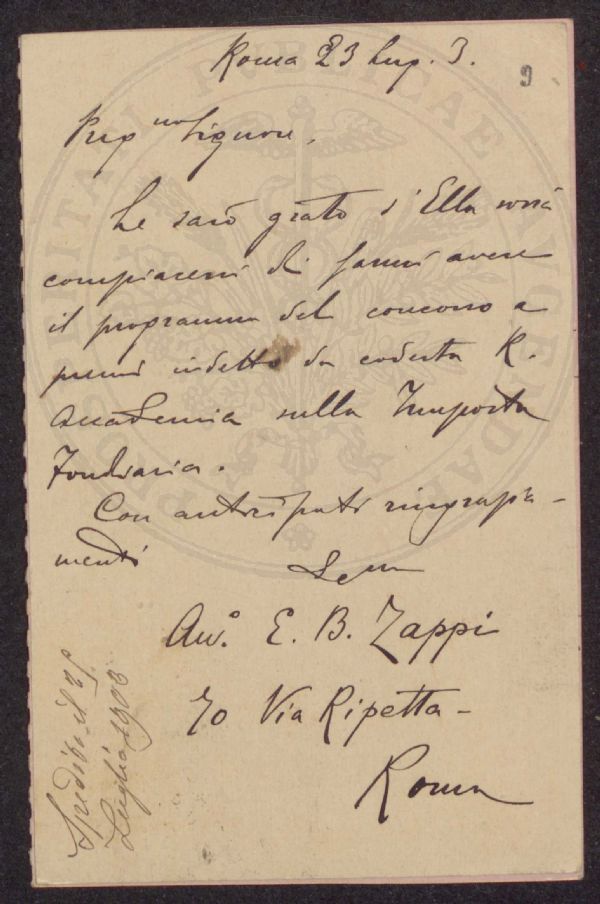 Roma 23 Lug. 3.
9
Preg.mo Signore,
Le sarò grato s'Ella vorrà
compiacersi di farmi avere
il programma del concorso a
premi indetto da codesta R.
Accademia sulla Imposta
Fondiaria.
Con anticipati ringrazia-
menti
Avv. E. B. Zappi
70 Via Ripetta -
Roma
Spedito il 25
Luglio 1903
PROSPERITATI PUBLICAE AUGENDAE